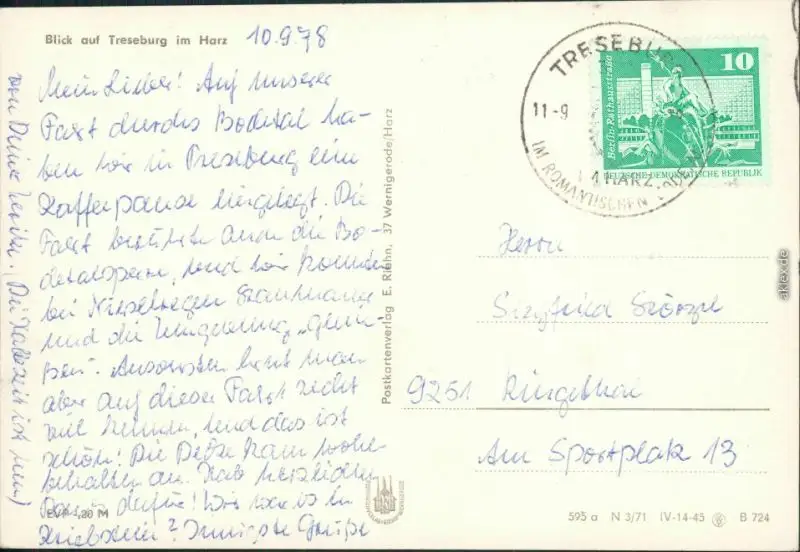 Blick auf Treseburg im Harz 10.9.78
Mein Lieber! Auf unserer
Fahrt durchs Bodetal ha-
ben wir in Treseburg eine
Kaffeepause eingelegt. Die
Fahrt berührte auch die Bo-
detalsperre, und wir konnten
bei Nieselregen
und die Umgebung „genie-
ßen“. Ansonsten lernt man
aber auf dieser Fahrt recht
viel kennen, und das ist
schön! Die Decke kam wohl-
behalten an. Hab herzlichen
Dank dafür! Wie war es in
Kriebstein? Innigste Grüße
von Deiner
(Die Kaffeezeit ist um)
EVP -,20 M
Postkartenverlag E. Riehn, 37 Wernigerode/Harz
TRESEBURG
11-9
HARZ
IM ROMANTISCHEN BODETAL
10
Berlin-Rathausstraße
DEUTSCHE DEMOKRATISCHE REPUBLIK
Herrn
9251 Ringethal
Am Sportplatz 13
595 a N 3/71 IV-14-45 B 724
aklex.de